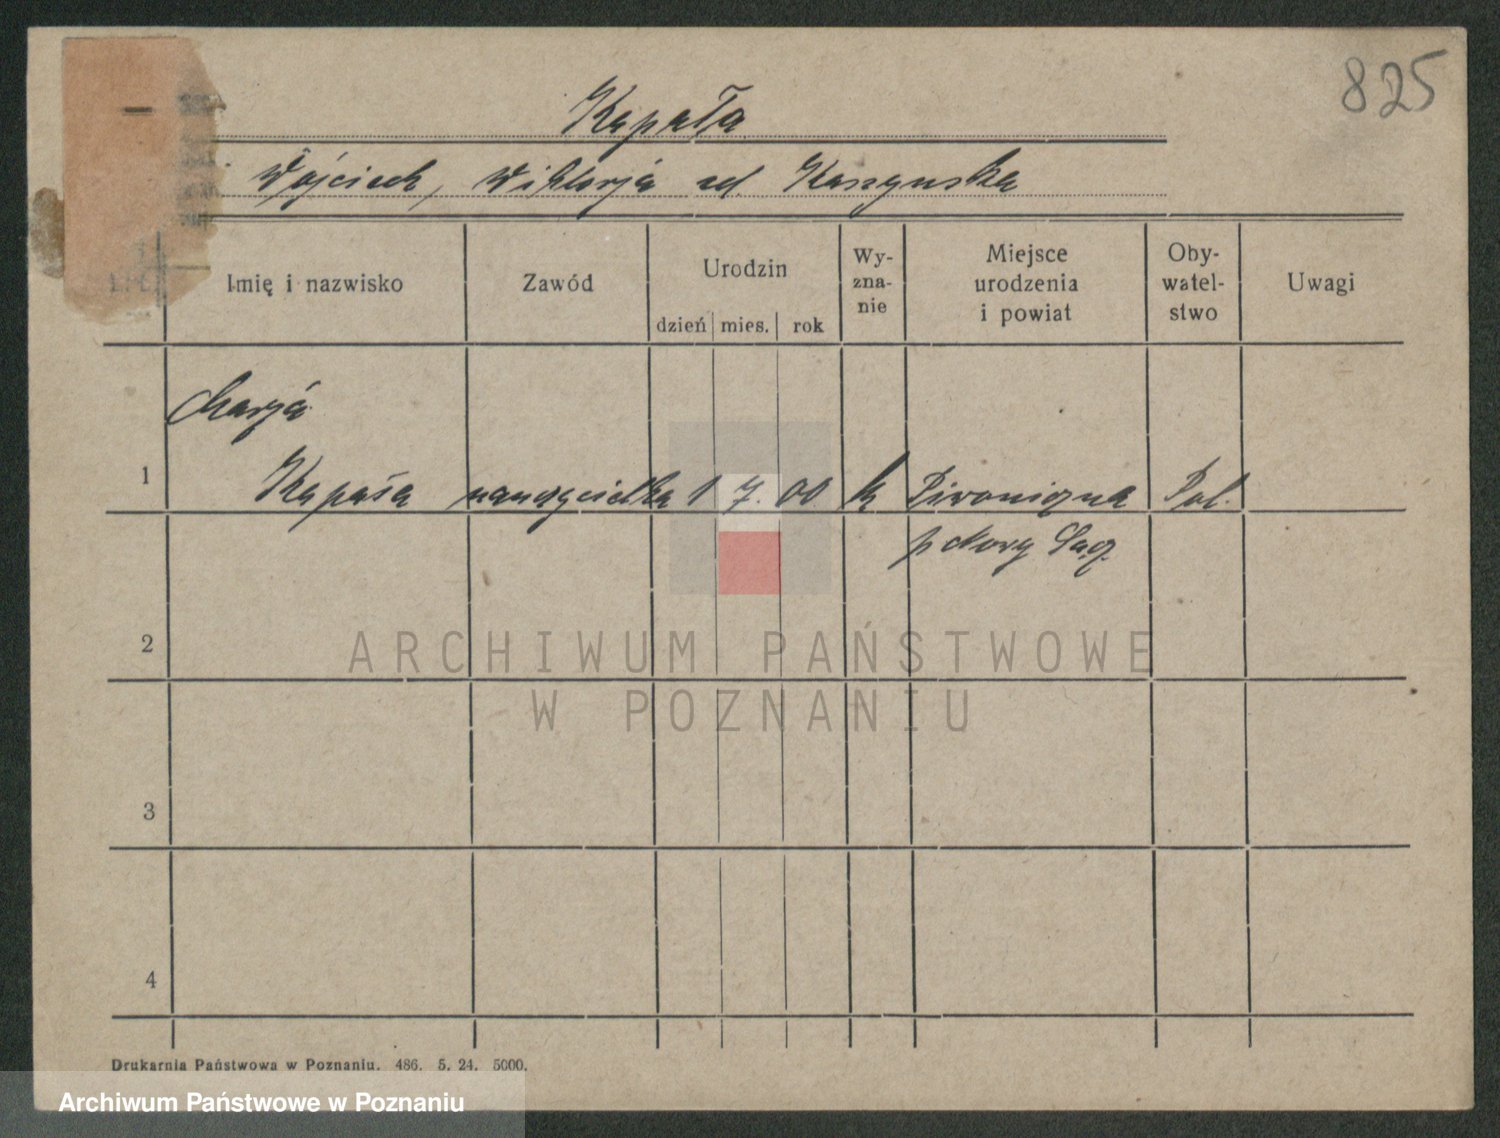 825
Kąpała
Wojciech, Wiktorja zd Kaszynska
Imię i nazwisko Zawód Urodzin dzień mies. rok Wy-zna-nie Miejsce urodzenia i powiat Oby-watel-stwo Uwagi
Marja
1 Kąpała nauczycielka 1 7. 00 k Piwniczna Pol.
p Nowy Sącz.
2
ARCHIWUM PAŃSTWOWE
W POZNANIU
3
4
Drukarnia Państwowa w Poznaniu. 486. 5. 24. 5000.
Archiwum Państwowe w Poznaniu